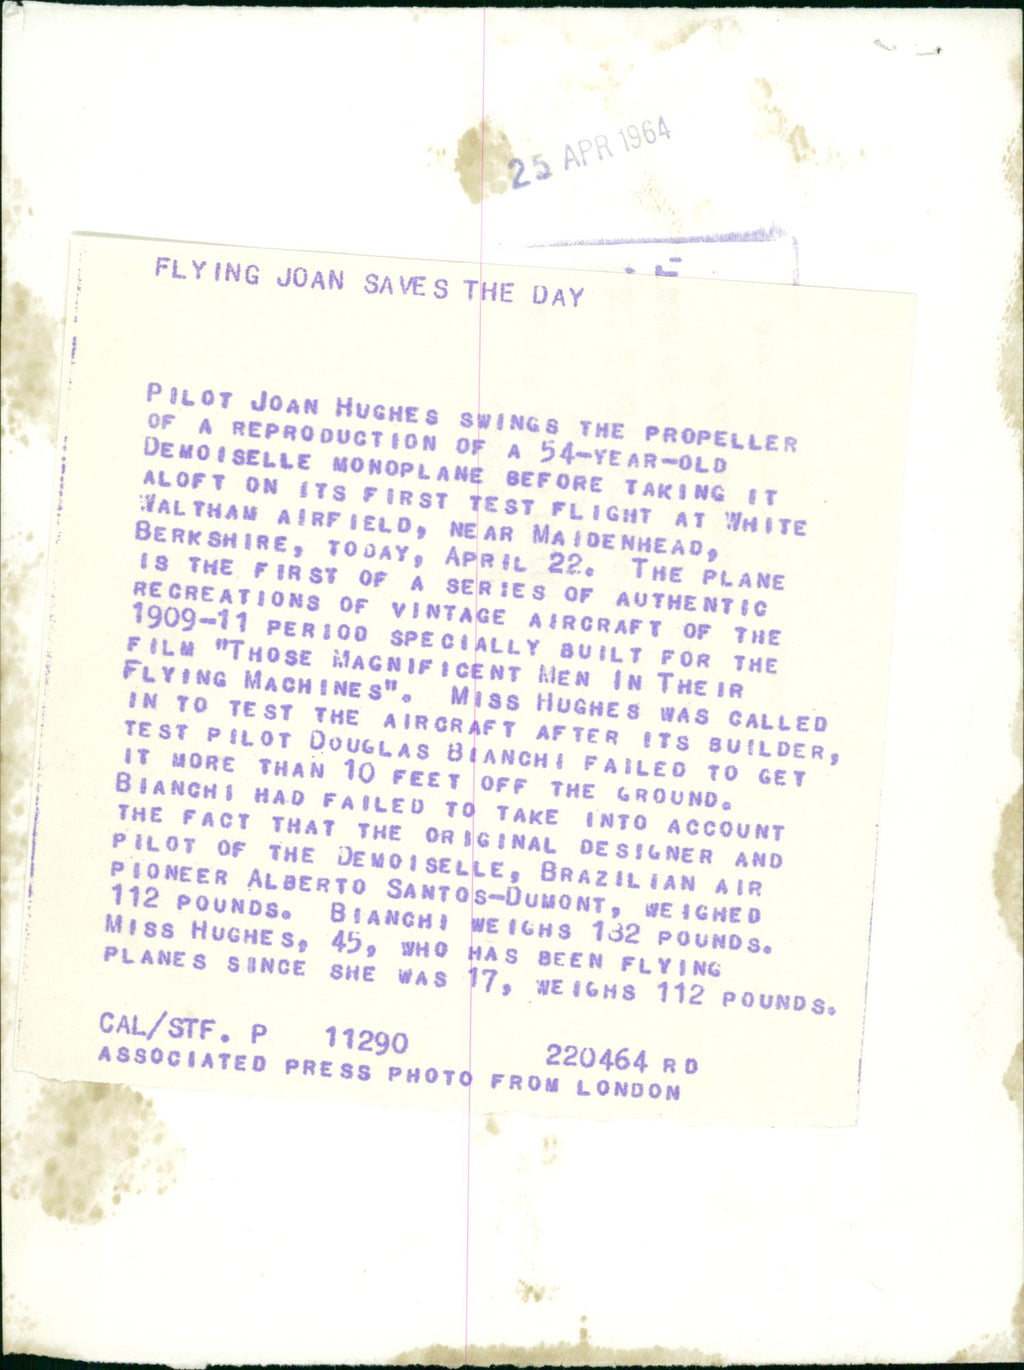 25 APR 1964
FLYING JOAN SAVES THE DAY
PILOT JOAN HUGHES SWINGS THE PROPELLER
OF A REPRODUCTION OF A 54-YEAR-OLD
DEMOISELLE MONOPLANE BEFORE TAKING IT
ALOFT ON ITS FIRST TEST FLIGHT AT WHITE
WALTHAM AIRFIELD, NEAR MAIDENHEAD,
BERKSHIRE, TODAY, APRIL 22. THE PLANE
IS THE FIRST OF A SERIES OF AUTHENTIC
RECREATIONS OF VINTAGE AIRCRAFT OF THE
1909-11 PERIOD SPECIALLY BUILT FOR THE
FILM "THOSE MAGNIFICENT MEN IN THEIR
FLYING MACHINES". MISS HUGHES WAS CALLED
IN TO TEST THE AIRCRAFT AFTER ITS BUILDER,
TEST PILOT DOUGLAS BIANCHI FAILED TO GET
IT MORE THAN 10 FEET OFF THE GROUND.
BIANCHI HAD FAILED TO TAKE INTO ACCOUNT
THE FACT THAT THE ORIGINAL DESIGNER AND
PILOT OF THE DEMOISELLE, BRAZILIAN AIR
PIONEER ALBERTO SANTOS-DUMONT, WEIGHED
112 POUNDS. BIANCHI WEIGHS 182 POUNDS.
MISS HUGHES, 45, WHO HAS BEEN FLYING
PLANES SINCE SHE WAS 17, WEIGHS 112 POUNDS.
CAL/STF. P 11290 220464 RD
ASSOCIATED PRESS PHOTO FROM LONDON